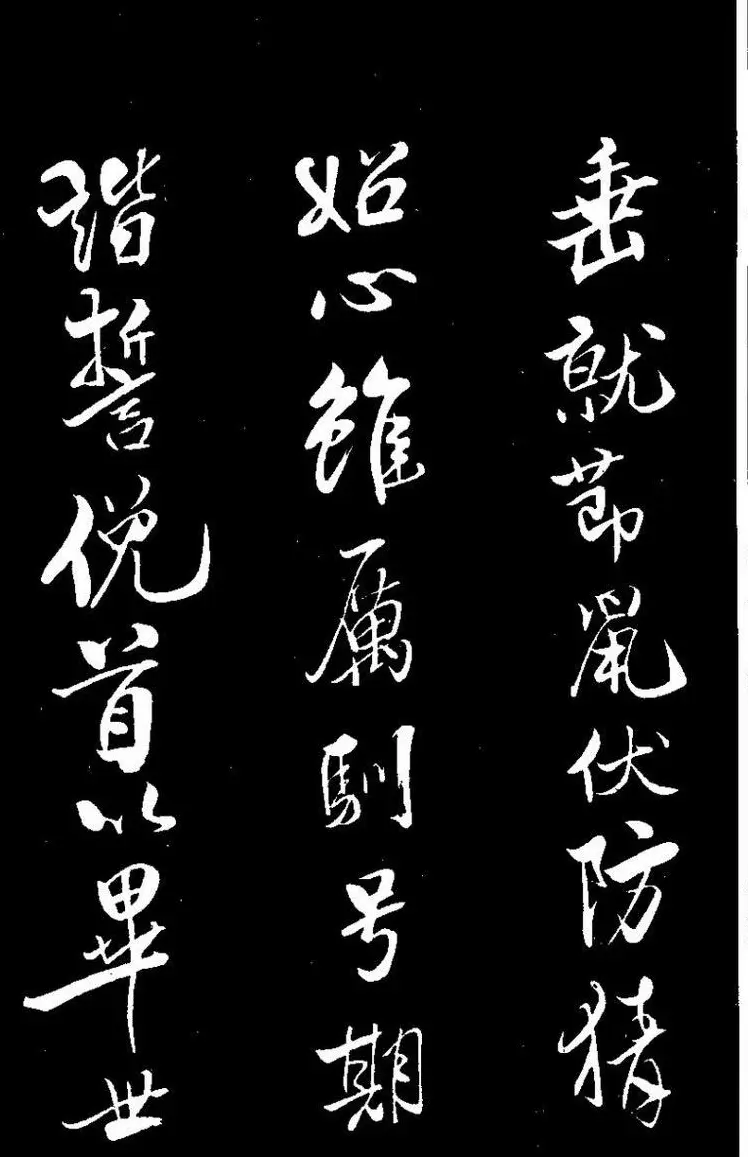 垂就莭鼠伏防猜
妬心雖厲馴号期
誓俛首以畢世